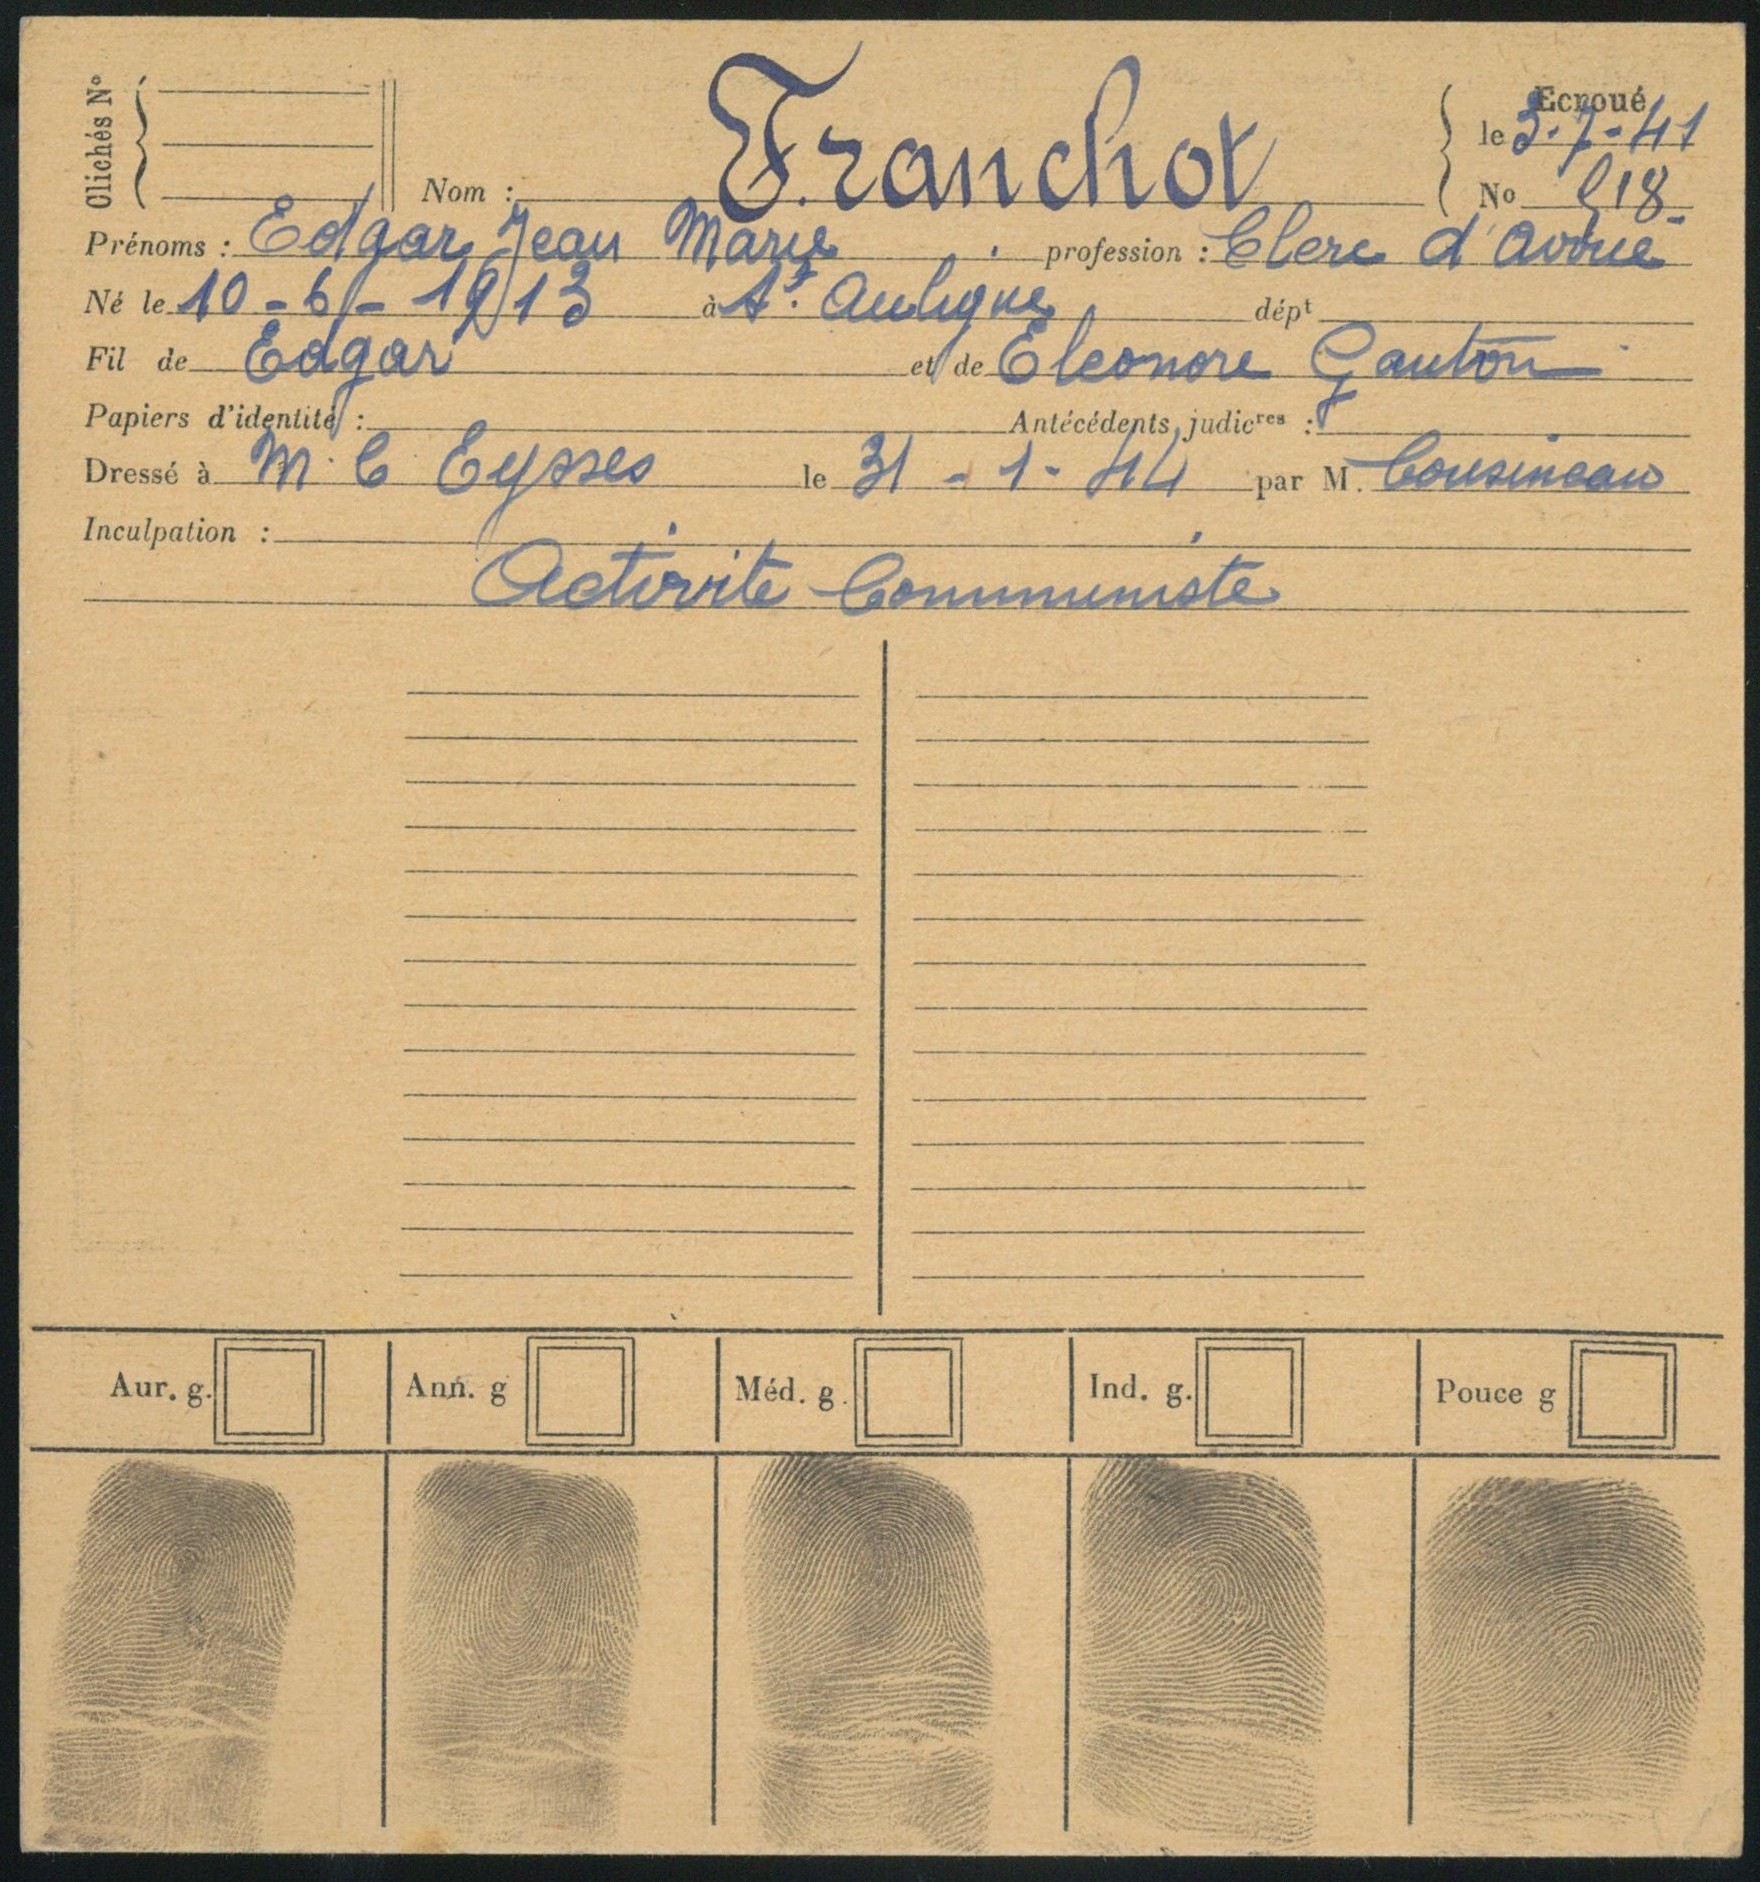 Clichés N°
Ecroué
Nom : Franchot
le 3-7-41
No 818
Prénoms : Edgar Jean Marie profession : Clerc d'avoué
Né le 10-6-1913 à St. Aubigne dépt
Fil de Edgar et de Eleonore Gauton
Papiers d'identité : Antécédents judicres :
Dressé à M.C Eysses le 31-1-44 par M. Cousineau
Inculpation :
Activité Communiste
Aur. g. Ann. g Méd. g. Ind. g. Pouce g